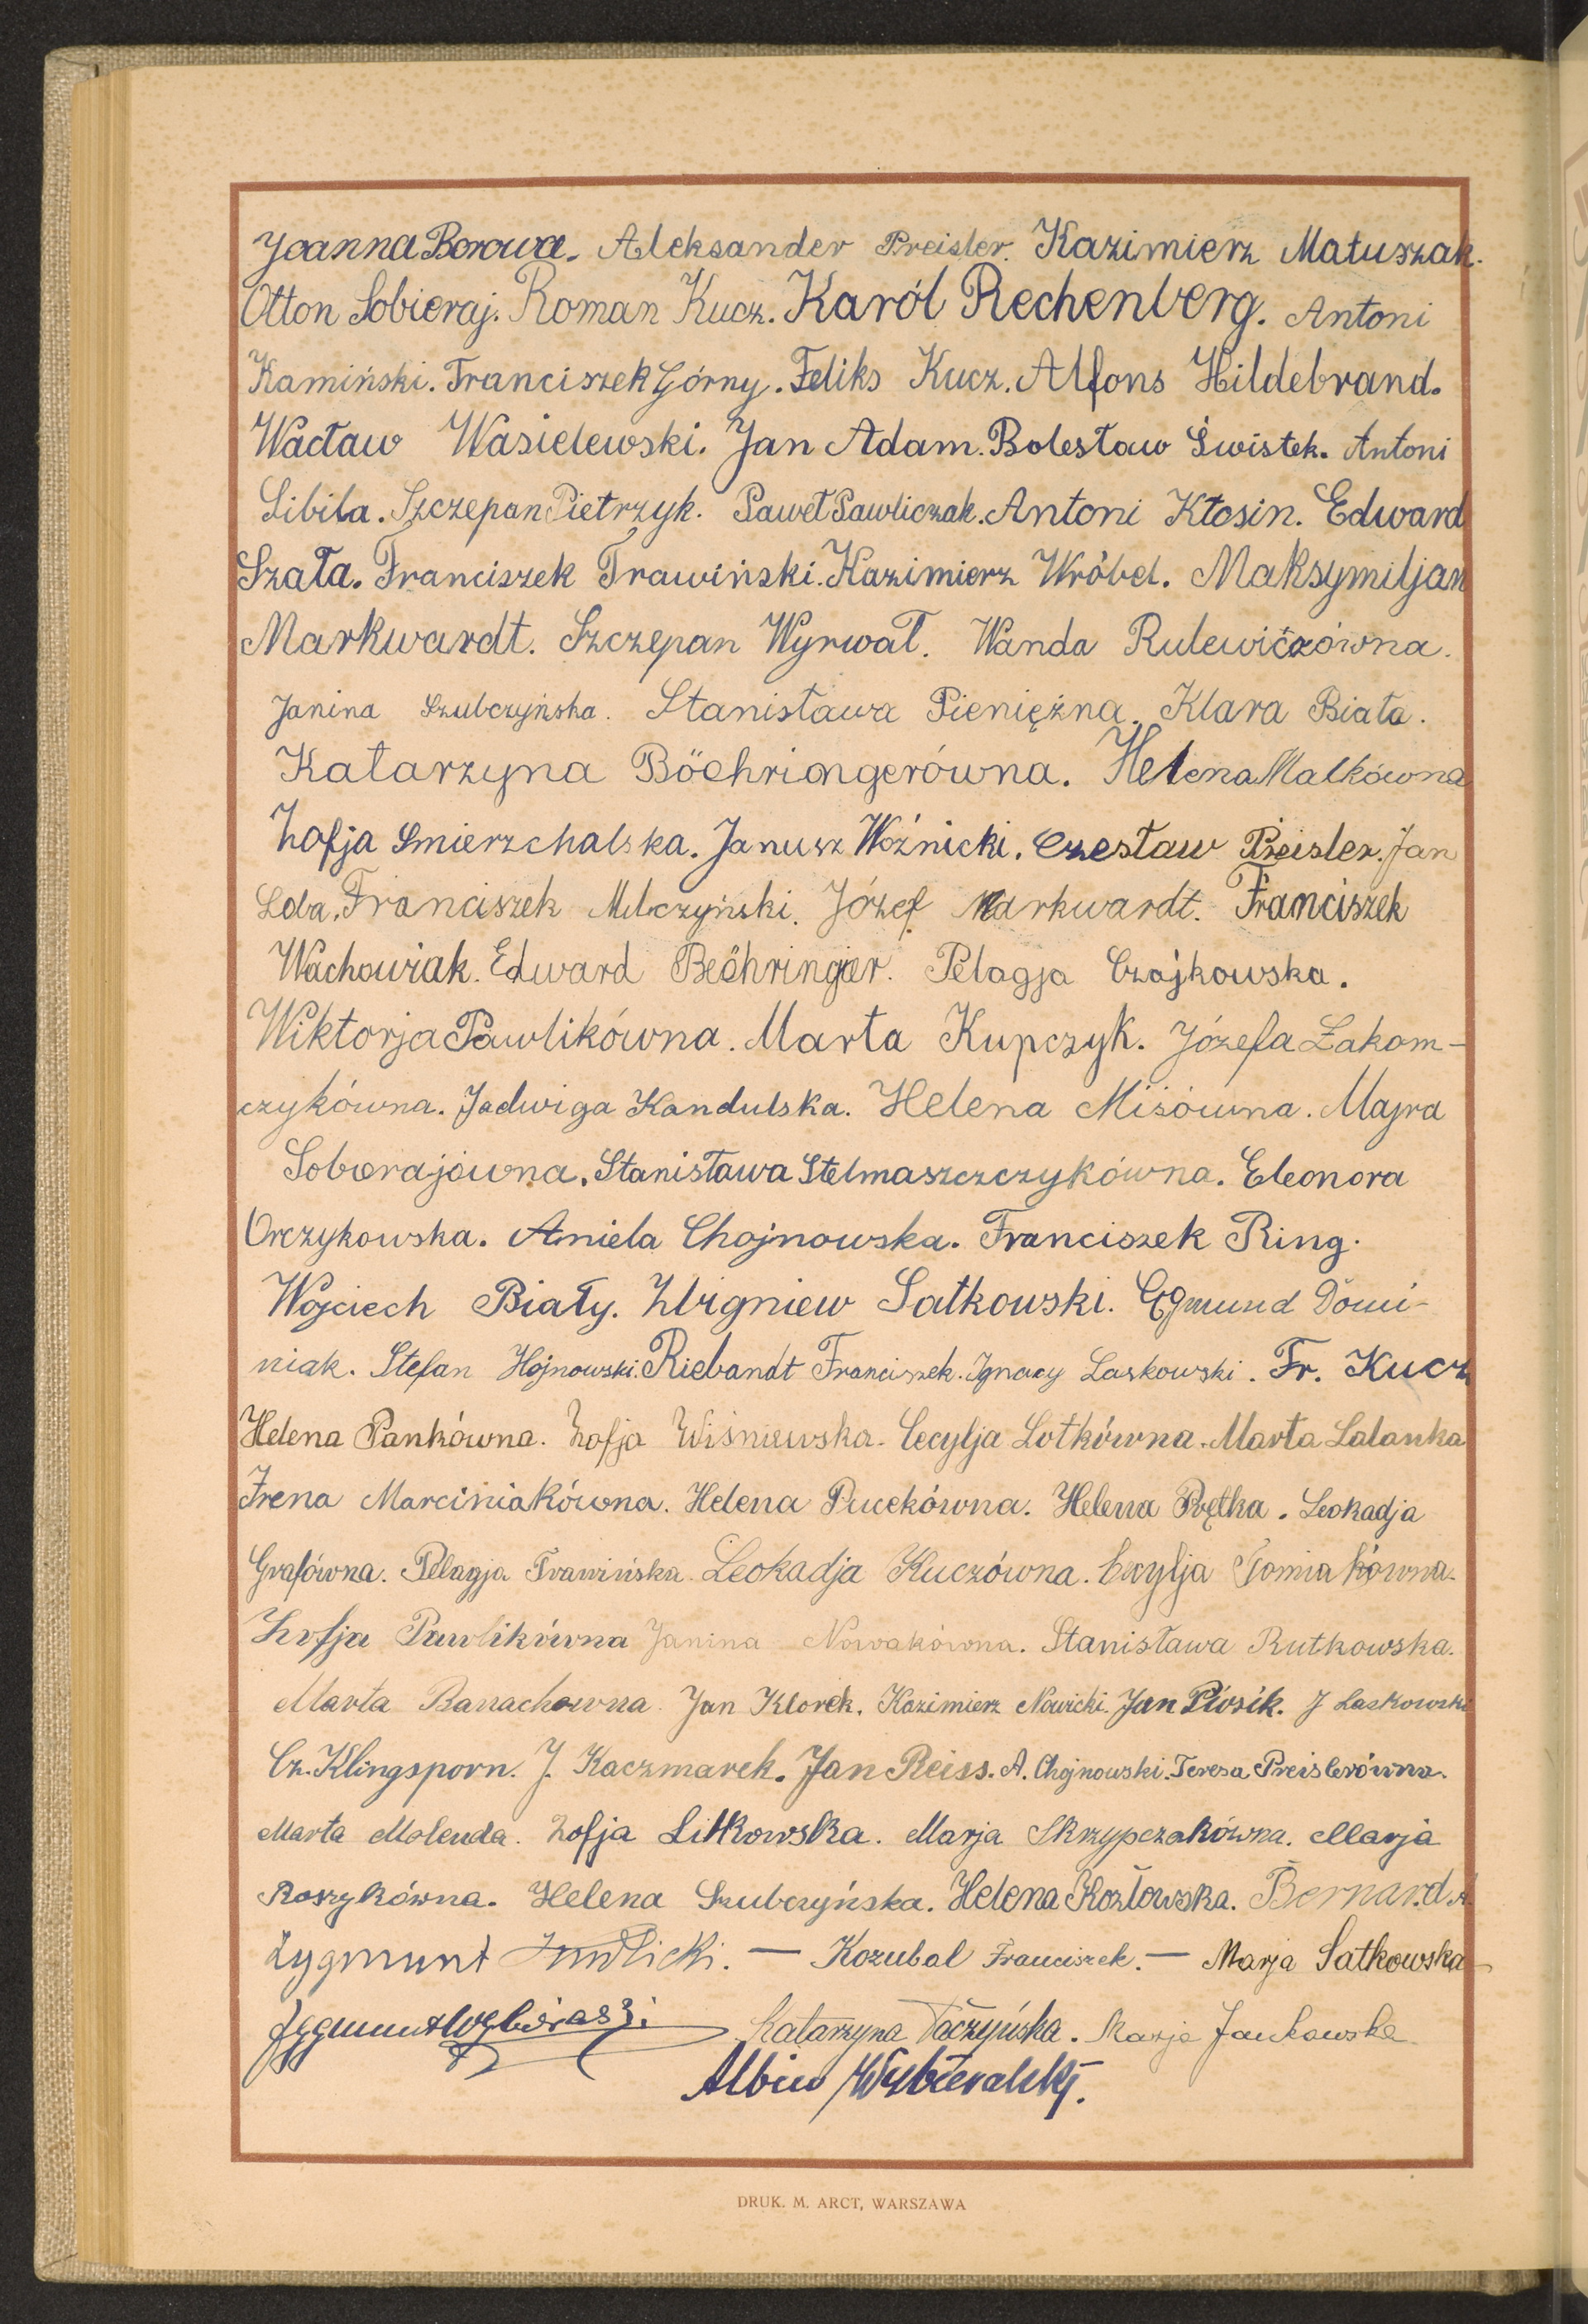 Joanna Borowa. Aleksander Preisler. Kazimierz Matuszak.
Otton Sobieraj. Roman Kucz. Karól Rechenberg. Antoni
Kamiński. Franciszek Górny. Feliks Kucz. Alfons Hildebrand.
Wacław Wasielewski. Jan Adam. Bolesław Świstek. Antoni
Libila. Szczepan Pietrzyk. Paweł Pawliczak. Antoni Kłosin. Edward
Szała. Franciszek Trawiński. Kazimierz Wróbel. Maksymiljan
Markwardt. Szczepan Wyrwał. Wanda Rulewiczówna.
Janina Szubczyńska. Stanisława Pieniężna. Klara Biała.
Katarzyna Böehringerówna. Helena Malkówna
Zofja Smierzchalska. Janusz Woźnicki. Czesław Preisler. Jan
Loba. Franciszek Milczyński. Józef Markwardt. Franciszek
Wachowiak. Edward Beöhringier. Pelagja Czajkowska.
Wiktorja Pawlikówna. Marta Kupczyk. Józefa Łakom-
czykówna. Jadwiga Kandulska. Helena Misiówna. Majra
Soberajówna. Stanisława Stelmaszczczykówna. Eleonora
Orczykowska. Aniela Chojnowska. Franciszek Ring.
Wojciech Biały. Zbigniew Satkowski. Egmund Domi-
niak. Stefan Hojnowski. Riebandt Franciszek. Ignacy Laskowski. Fr. Kucz
Helena Pankówna. Zofja Wiśniewska. Cecylja Lotkówna. Marta Lalanka
Irena Marciniakówna. Helena Pucekówna. Helena Prętka. Leokadja
Grafówna. Pelagja Trawińska. Leokadja Kuczówna. Cecylja Tomiakówna.
Zofja Pawlikówna Janina Nowakówna. Stanisława Rutkowska.
Marta Banachowna. Jan Klorek. Kazimierz Nowicki. Jan Piosik. J Laskowski
Cz. Klingsporn. J. Kaczmarek. Jan Reiss. A. Chojnowski. Teresa Preislerówna.
Marta Molenda. Zofja Litkowska. Marja Skrzypczakówna. Marja
Roszykówna. Helena Szubczyńska. Helena Kozłowska. Bernard A.
Zygmunt — Kozubal Franciszek. — Marja Satkowska
Zygmunt Katarzyna Taczyńska. Marja Jankowska
Albin
DRUK. M. ARCT, WARSZAWA